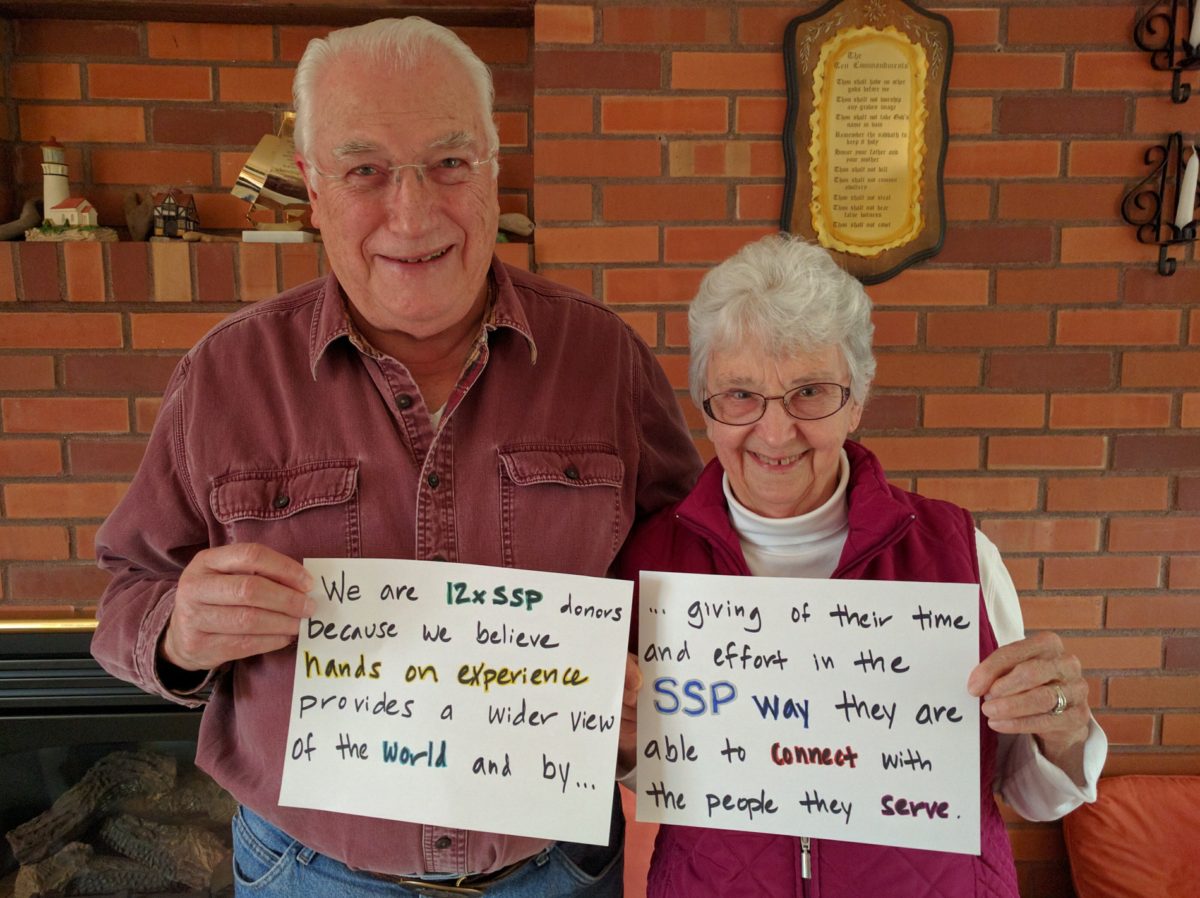 The
Ten Commandments
Thou shalt have no other
gods before me
Thou shalt not worship
any graven image
Thou shalt not take God's
name in vain
Remember the sabbath to
keep it holy
Honor your father and
your mother
Thou shalt not kill
Thou shalt not commit
adultery
Thou shalt not steal
Thou shalt not bear
false witness
Thou shalt not covet
We are 12xSSP donors
because we believe
hands on experience
provides a wider view
of the world and by...
... giving of their time
and effort in the
SSP way they are
able to connect with
the people they serve.